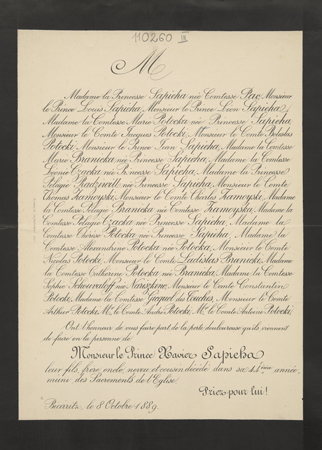 110260 III
M
Madame la Princesse Sapieha née Comtesse Monsieur
le Prince Louis Sapieha, Monsieur le Prince Léon Sapieha,
Madame la Comtesse Marie Potocka née Princesse Sapieha
Monsieur le Comte Jacques Potocki, Monsieur le Comte Boleslas
Potocki Monsieur le Prince Jean Sapieha, Madame la Comtesse
Marie Branicka née Princesse Sapieha, Madame la Comtesse
Léonie Czacka née Princesse Sapieha, Madame la Princesse
Pélagie Radziwill née Princesse Sapieha, Monsieur le Comte
Thomas Zamoyski, Monsieur le Comte Charles Zamoyski, Madame
la Comtesse Pélagie Branicka née Comtesse Zamoyska, Madame la
Comtesse Pélagie Czacka née Princesse Sapieha, Madame la
Comtesse Thérèse Potocka née Princesse Sapieha, Madame la
Comtesse Alexandrine Potocka née Potocka, Monsieur le Comte
Nicolas Potocki, Monsieur le Comte Ladislas Branicki, Madame
la Comtesse Catherine Potocka née Branicka, Madame la Comtesse
Sophie née Monsieur le Comte Constantin
Potocki, Madame la Comtesse des Monsieur le Comte
Arthur Potocki, Mr. le Comte André Potocki, Mr. le Comte Antoine Potocki,
Ont l'honneur de vous faire part de la perte douloureuse qu'ils viennent
de faire en la personne de
Monsieur le Prince Xavier Sapieha
leur fils, frère, oncle, neveu et cousin, décédé dans sa année
muni des Sacrements de l'Eglise.
Priez pour lui!
Biarritz, le 8 Octobre 1889.